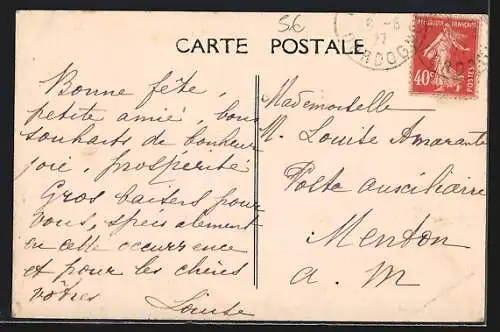 56
CARTE POSTALE
6 - 8
27
DORDOGNE
REPUBLIQUE FRANÇAISE
40c
POSTES
Bonne fête,
petite amié, bons
souhaits de bonheur
joie, prospérité
Gros baisers pour
vous, spécialement
en cette occurrence
et pour les chères
vôtres
Louise
Mademoiselle
M. Louise Amarante
Poste auxiliaire
Menton
A. M